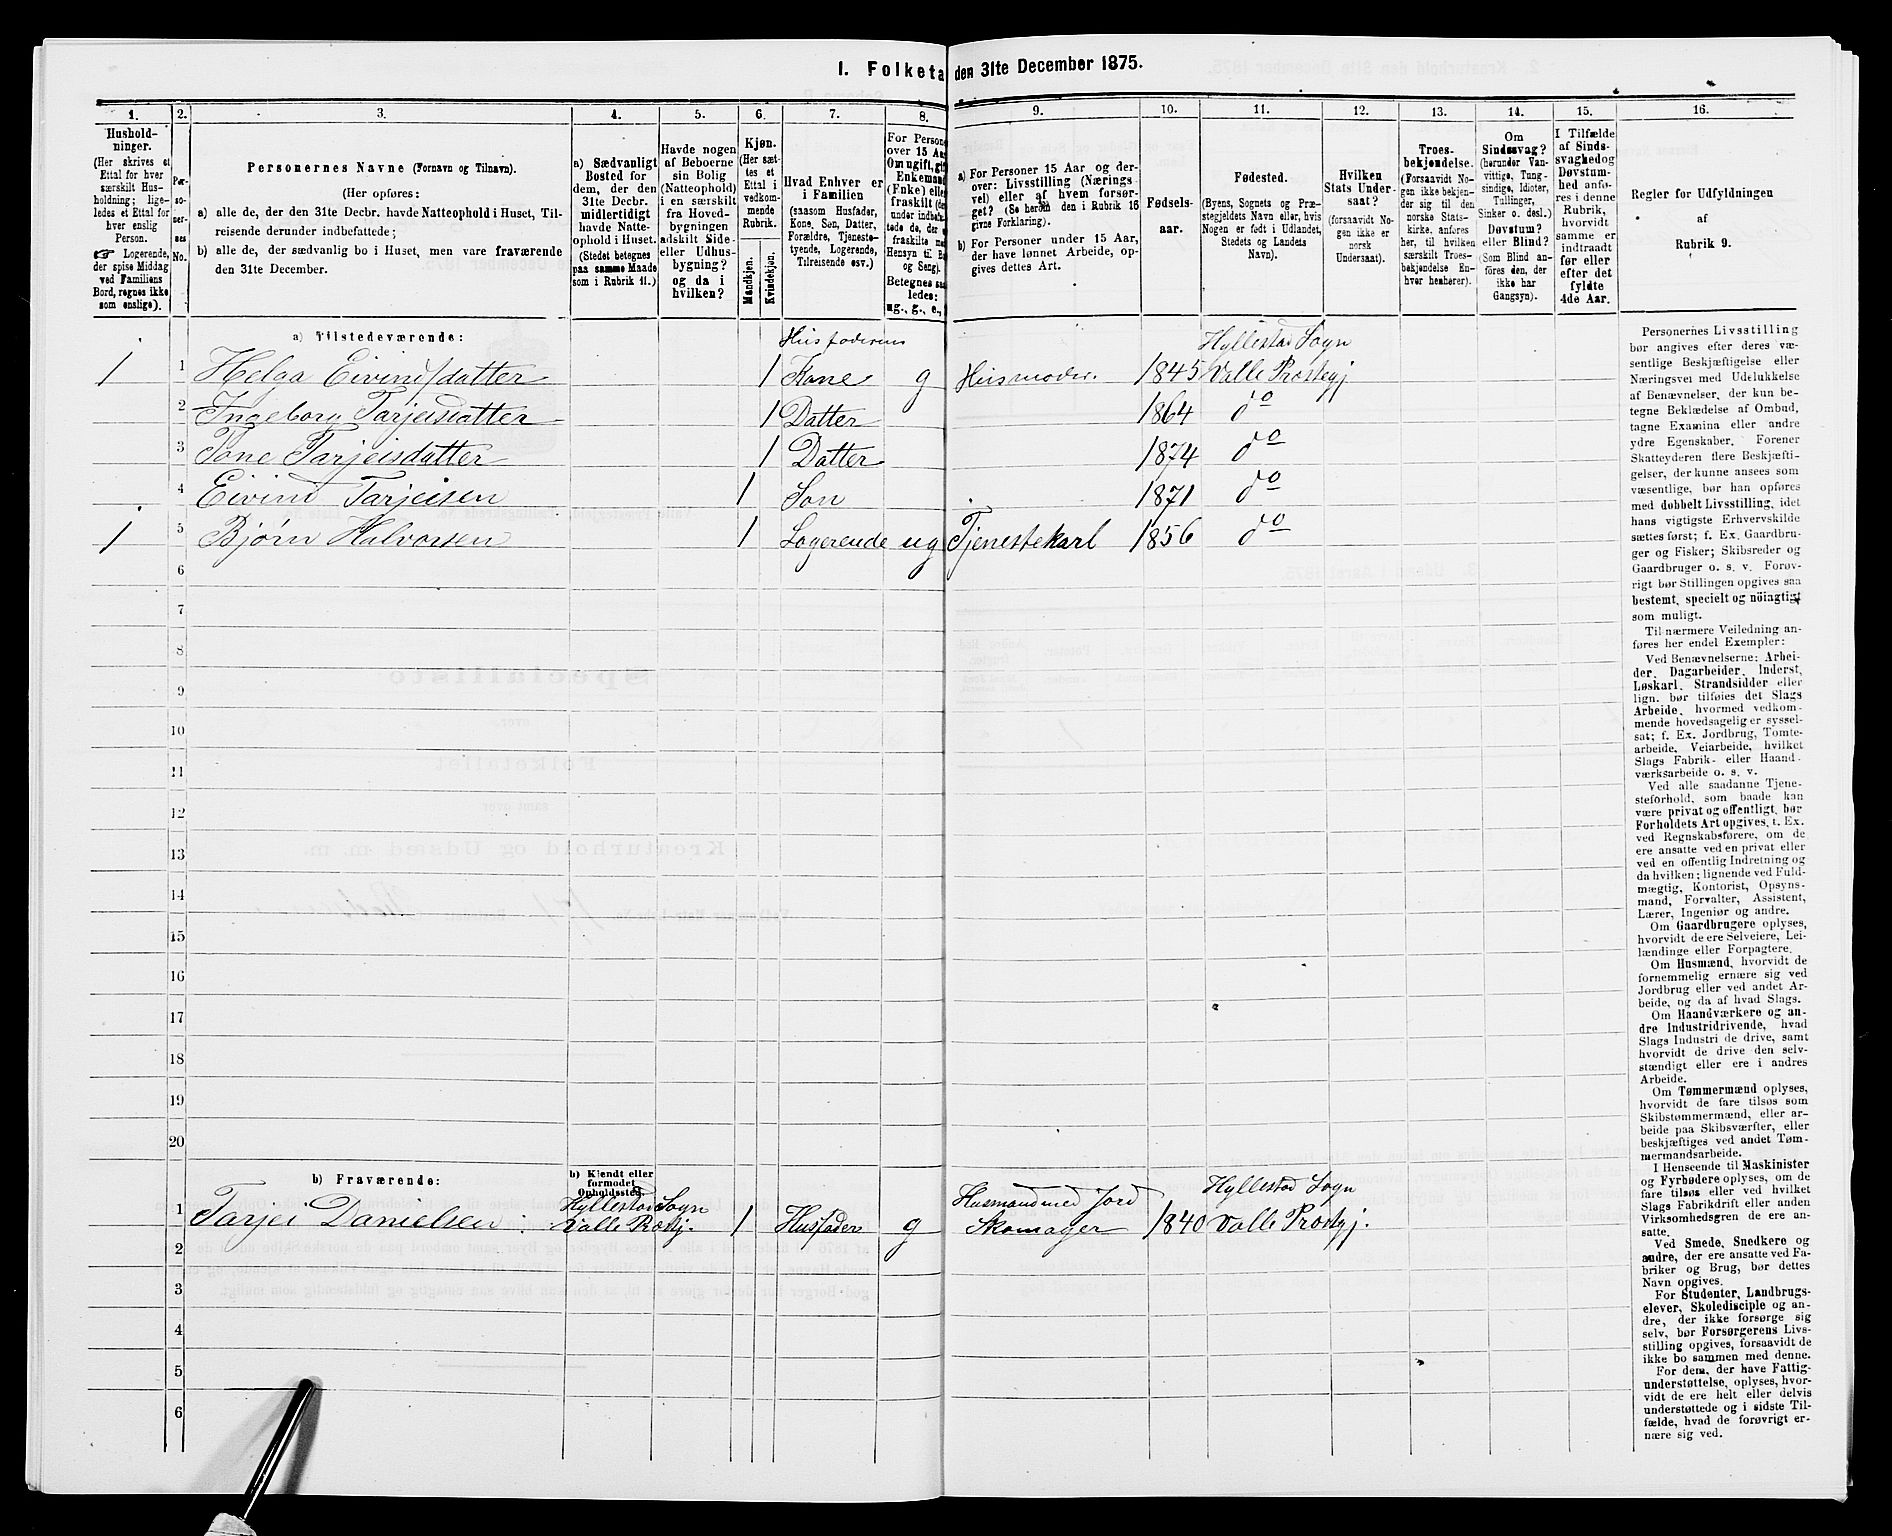 I. Folketa den 31te December 1875.
1.
Hushold-
ninger.
(Her skrives et
Ettal for hver
særskilt Hus-
holdning; lige-
ledes et Ettal for
hver enslig
Person.
☞ Logerende,
der spise Middag
ved Familiens
Bord, regnes ikke
som enslige).
2.
Per-
so-
ner-
nes
No.
3.
Personernes Navne (Fornavn og Tilnavn).
(Her opføres:
a) alle de, der den 31te Decbr. havde Natteophold i Huset, Til-
reisende derunder indbefattede;
b) alle de, der sædvanlig bo i Huset, men vare fraværende
den 31te December.
4.
a) Sædvanligt
Bosted for
dem, der den
31te Decbr.
midlertidigt
havde Natte-
ophold i Huset.
(Stedet betegnes
paa samme Maade
som i Rubrik 11.)
5.
Havde nogen
af Beboerne
sin Bolig
(Natteophold)
i en særskilt
fra Hoved-
bygningen
adskilt Side-
eller Udhus-
bygning?
og da i
hvilken?
6.
Kjøn.
(Her sæt-
tes et
Ettal i
vedkom-
mende
Rubrik.
Mandkjøn.
Kvindekjøn.
7.
Hvad Enhver er
i Familien
(saasom Husfader,
Kone, Søn, Datter,
Forældre, Tjeneste-
tyende, Logerende,
Tilreisende osv.)
8.
For Persone
over 15 Aa
Om ugift, gi
Enkemand
(Enke) elle
fraskilt (de
under indbefa
tede de, der e
fraskilte me
Hensyn til B
og Seng).
Betegnes sa
ledes:
ug., g., e.,
9.
a) For Personer 15 Aar og der-
over: Livsstilling (Nærings
vei) eller af hvem forsør-
get? (Se herom den i Rubrik 16
givne Forklaring).
b) For Personer under 15 Aar,
der have lønnet Arbeide, op-
gives dettes Art.
10.
Fødsels-
aar.
11.
Fødested.
(Byens, Sognets og Præ-
stegjeldets Navn eller, hvis
Nogen er født i Udlandet,
Stedets og Landets
Navn).
12.
Hvilken
Stats Under-
saat?
(forsaavidt No-
gen ikke er
norsk
Undersaat).
13.
Troes-
bekjendelse.
(Forsaavidt No-
gen ikke bekjen-
der sig til den
norske Stats-
kirke, anføres
her, til hvilken
særskilt Troes-
bekjendelse En-
hver henhører).
14.
Om
Sindssvag?
(herunder Van-
vittige, Tung-
sindige, Idioter,
Tullinger,
Sinker o. desl.)
Døvstum?
eller Blind?
(Som Blind an-
føres den, der
ikke har
Gangsyn).
15.
I Tilfælde
af Sinds-
svaghed og
Døvstum-
hed anfø-
res i denne
Rubrik,
hvorvidt
samme er
indtraadt
før eller
efter det
fyldte
4de Aar.
16.
Regler for Udfyldningen
af
Rubrik 9.
a) Tilstedeværende:
Husfaderens Hyllestad Sogn
1 1 Helga Eivindsdatter 1 Kone g Husmoder. 1845 Valle Prostegj
2 Ingeborg Tarjeisdatter 1 Datter 1864 do
3 Tone Tarjeisdatter 1 Datter 1874 do
4 Eivind Tarjeisen 1 Søn 1871 do
1 5 Bjørn Halvorsen 1 Logerende ug Tjenestekarl 1856 do
6
7
8
9
10
11
12
13
14
15
16
17
18
19
20
b) Fraværende:
b) Kjendt eller
formodet
Opholdssted.
Hyllestad Sogn Husmand med Jord Hyllestad Sogn
1 Tarjei Danielsen Valle Prostj. 1 Husfader g Skomager 1840 Valle Prostgj.
2
3
4
5
6
Personernes Livsstilling
bør angives efter deres væ-
sentlige Beskjæftigelse eller
Næringsvei med Udelukkelse
af Benævnelser, der kun be-
tegne Beklædelse af Ombud,
tagne Examina eller andre
ydre Egenskaber. Forener
Skatteyderen flere Beskjæfti-
gelser, der kunne ansees som
væsentlige, bør han opføres
med dobbelt Livsstilling, idet
hans vigtigste Erhvervskilde
sættes først; f. Ex. Gaardbru-
ger og Fisker; Skibsreder og
Gaardbruger o. s. v. Forøv-
rigt bør Stillingen opgives saa
bestemt, specielt og nöiagtigt
som muligt.
Til nærmere Veiledning an-
føres her endel Exempler:
Ved Benævnelserne: Arbei-
der, Dagarbeider, Inderst,
Løskarl, Strandsidder eller
lign. bør tilføies det Slags
Arbeide, hvormed vedkom-
mende hovedsagelig er syssel-
sat; f. Ex. Jordbrug, Tomte-
arbeide, Veiarbeide, hvilket
Slags Fabrik- eller Haand-
værksarbeide o. s. v.
Ved alle saadanne Tjene-
steforhold, som baade kan
være privat og offentligt, bør
Forholdets Art opgives, t. Ex.
ved Regnskabsførere, om de
ere ansatte ved en privat eller
ved en offentlig Indretning og
da hvilken; lignende ved Fuld-
mægtig, Kontorist, Opsyns-
mand, Forvalter, Assistent,
Lærer, Ingeniør og andre.
Om Gaardbrugere oplyses,
hvorvidt de ere Selveiere, Lei-
lændinge eller Forpagtere.
Om Husmænd, hvorvidt de
fornemmelig ernære sig ved
Jordbrug eller ved andet Ar-
beide, og da af hvad Slags.
Om Haandværkere og an-
dre Industridrivende, hvad
Slags Industri de drive, samt
hvorvidt de drive den selv-
stændigt eller ere i andres
Arbeide.
Om Tømmermænd oplyses,
hvorvidt de fare tilsøs som
Skibstømmermænd, eller ar-
beide paa Skibsværfter, eller
beskjæftiges ved andet Tøm-
mermandsarbeide.
I Henseende til Maskinister
og Fyrbødere oplyses, om de
fare tilsøs eller ved hvilket
Slags Fabrikdrift eller anden
Virksomhedsgren de ere an-
satte.
Ved Smede, Snedkere og
andre, der ere ansatte ved Fa-
briker og Brug, bør dettes
Navn opgives.
For Studenter, Landbrugs-
elever, Skoledisciple og an-
dre, der ikke forsørge sig
selv, bør Forsørgerens Livs-
stilling opgives, forsaavidt de
ikke bo sammen med denne.
For dem, der have Fattig-
understøttelse, oplyses, hvor-
vidt de ere helt eller delvis
understøttede og i sidste Til-
fælde, hvad de forøvrigt er-
nære sig ved.